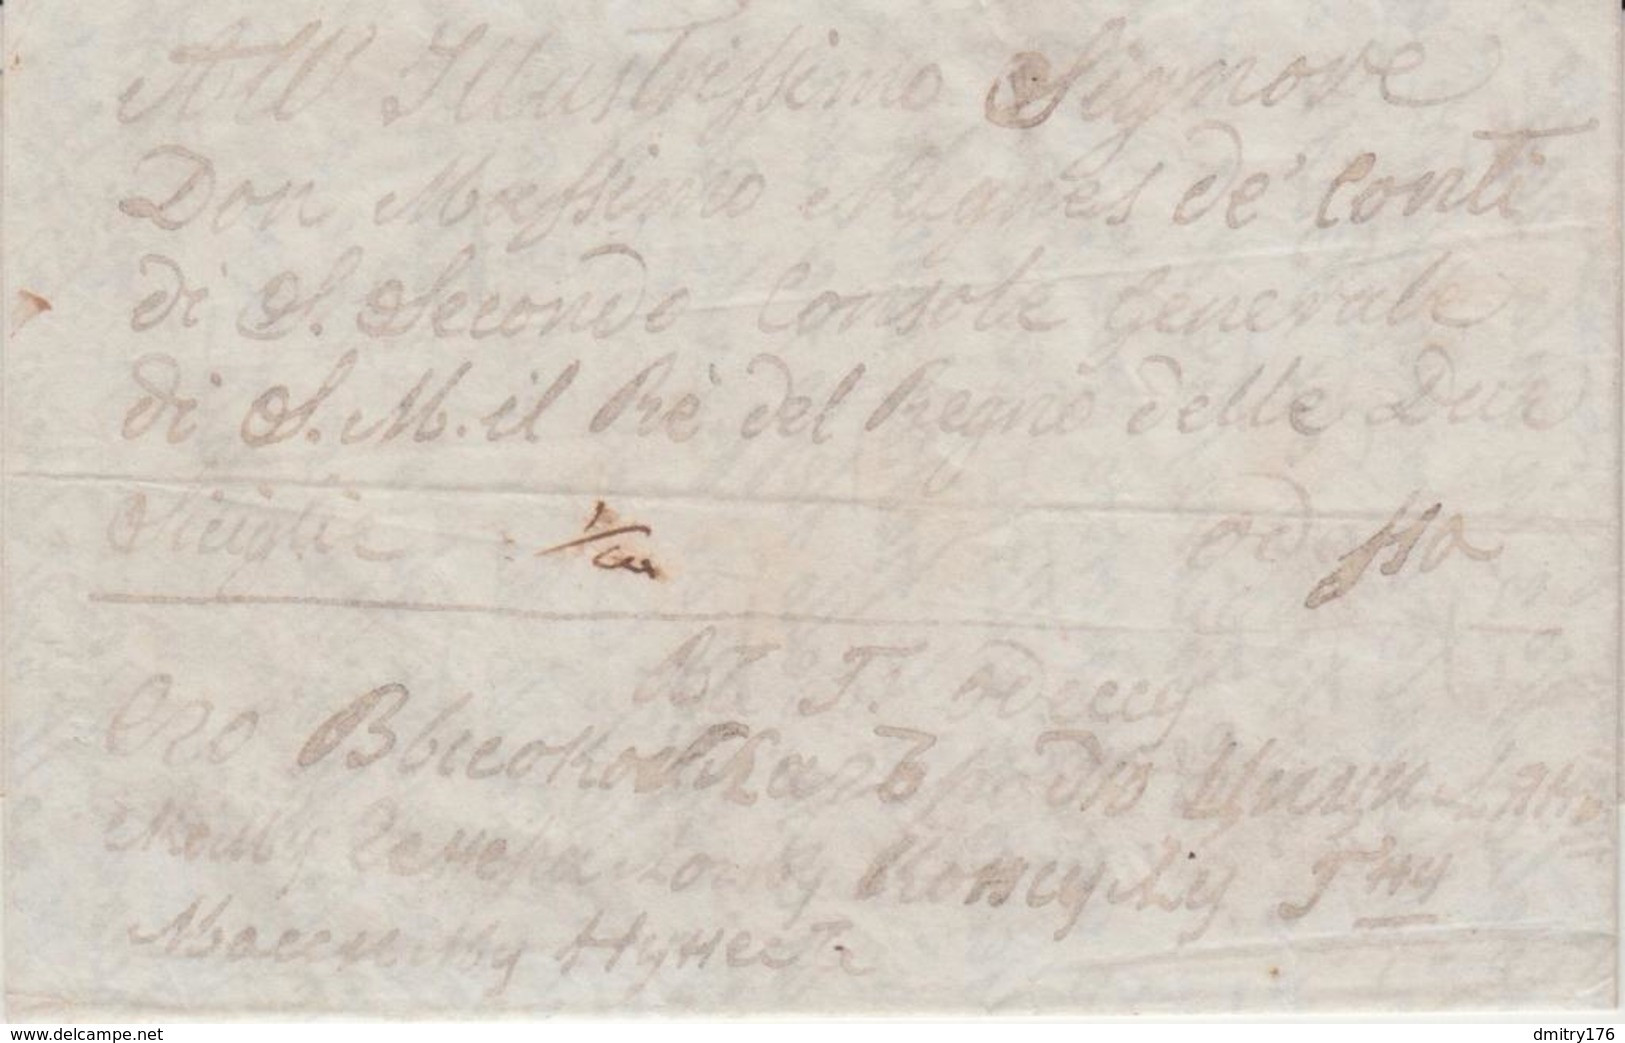 All' Illustrissimo Signore
Don Massimo Nugnes de' Conti
di S. Secondo Console Generale
di S. M. il Rè del Regno delle Due
Siciglie Odessa
Въ Г. Одессу
Его Высокоблаго
Генеральному Консулу Гну
Массиму Нунесъ
www.delcampe.net
dmitry176